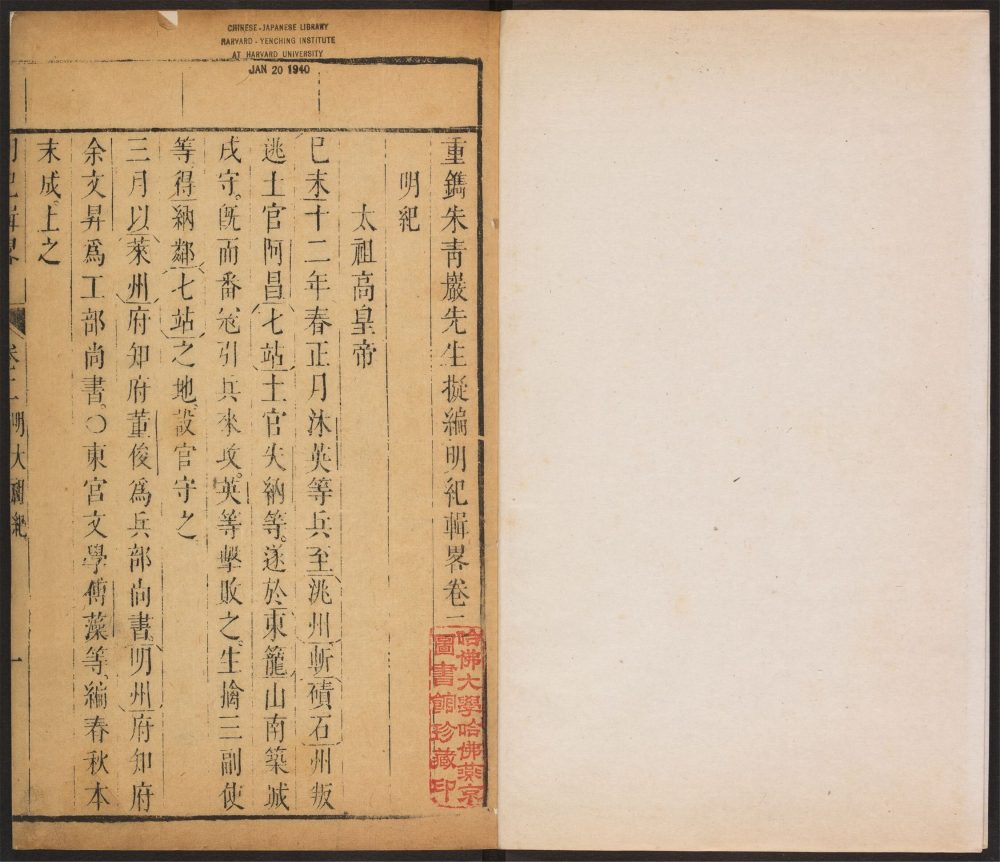 CHINESE-JAPANESE LIBRARY
HARVARD-YENCHING INSTITUTE
AT HARVARD UNIVERSITY
JAN 20 1940
重鐫朱青巖先生擬編明紀輯畧卷二
明紀
太祖高皇帝
巳未十二年春正月沐英等兵至洮州斬磧石州叛
逃土官阿昌七站土官失納等遂於東籠山南築城
戍守。旣而番宼引兵來攻。英等擊敗之。生擒三副使
等得納鄰七站之地。設官守之
三月以萊州府知府董俊爲兵部尚書。明州府知府
余文昇爲工部尚書。○東宮文學傅藻等編春秋本
末成。上之
明紀輯畧
卷二
明太祖紀
一
哈佛大學哈佛燕京
圖書館珍藏印